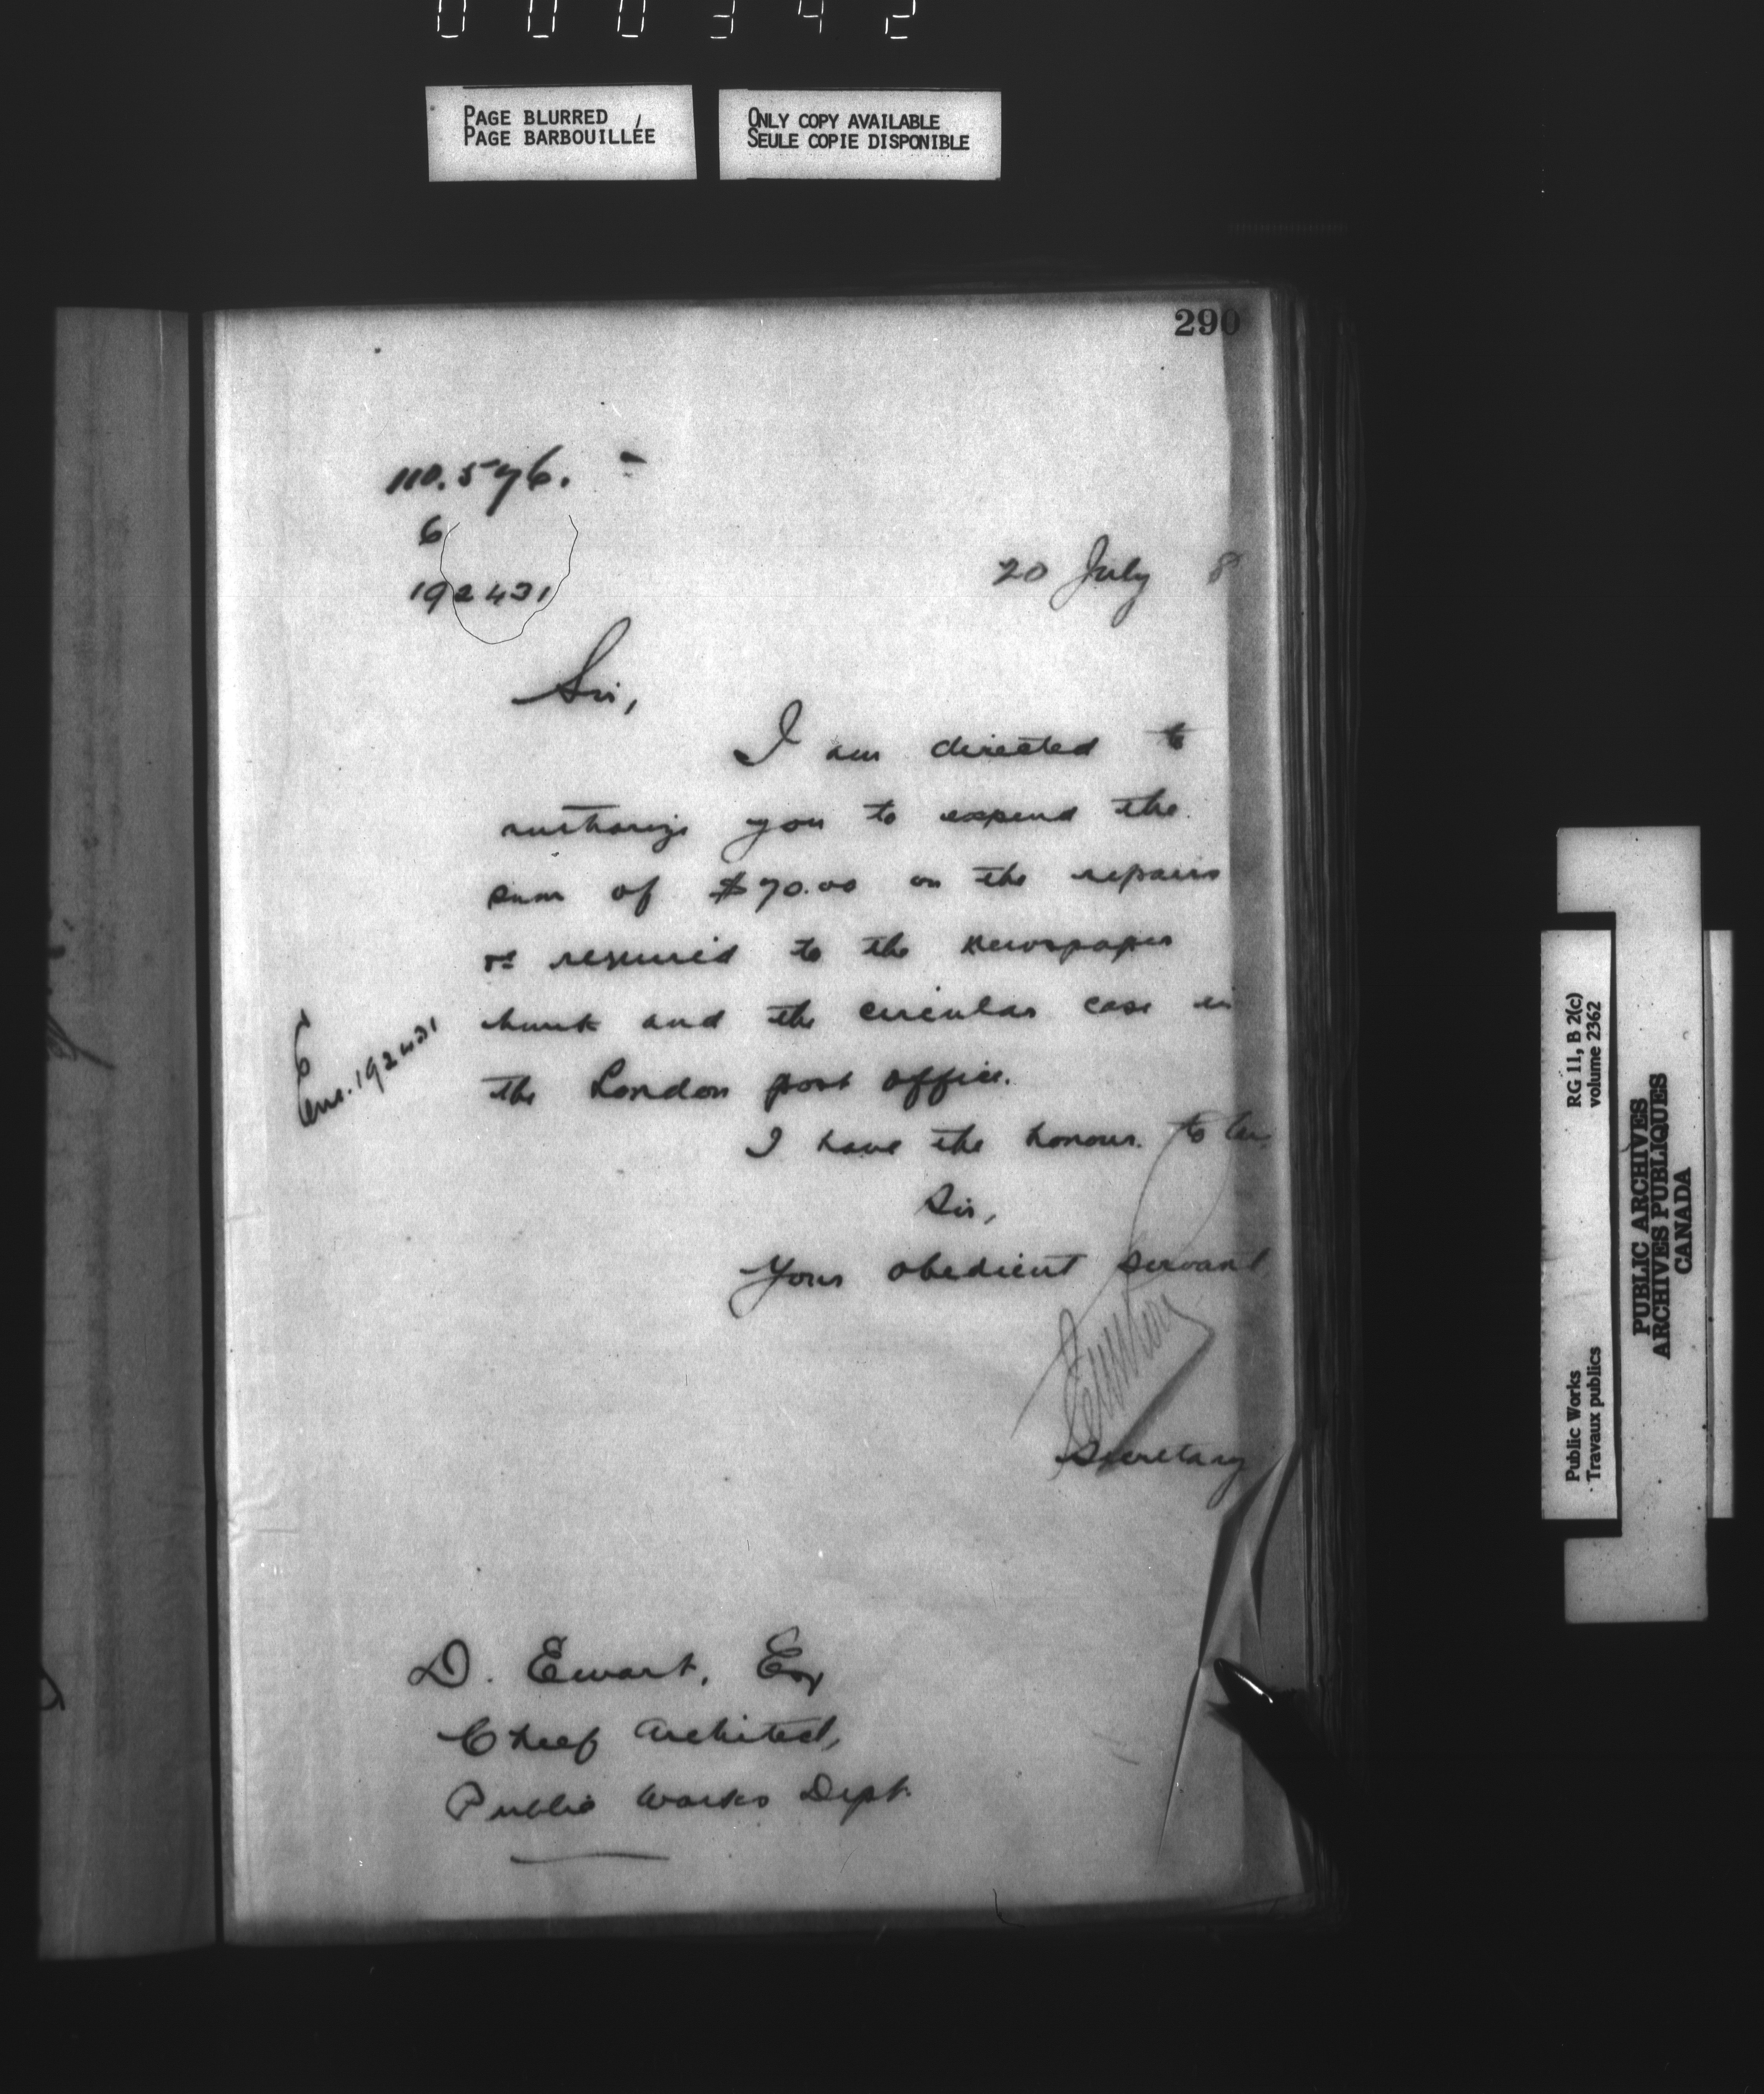 000342
PAGE BLURRED
PAGE BARBOUILLÉE
ONLY COPY AVAILABLE
SEULE COPIE DISPONIBLE
290
110.576.
6
192431
20 July 8
Sir,
I am directed to
authorize you to expend the
sum of $70.00 on the repairs
&c required to the newspaper
and the circular case in
the London post office.
I have the honour to be
Sir,
Your obedient servant
Secretary
6
Enc. 192431
D. Ewart, Esq
Chief Architect,
Public Works Dept.
RG 11, B 2(c)
volume 2362
Public Works
Travaux publics
PUBLIC ARCHIVES
ARCHIVES PUBLIQUES
CANADA